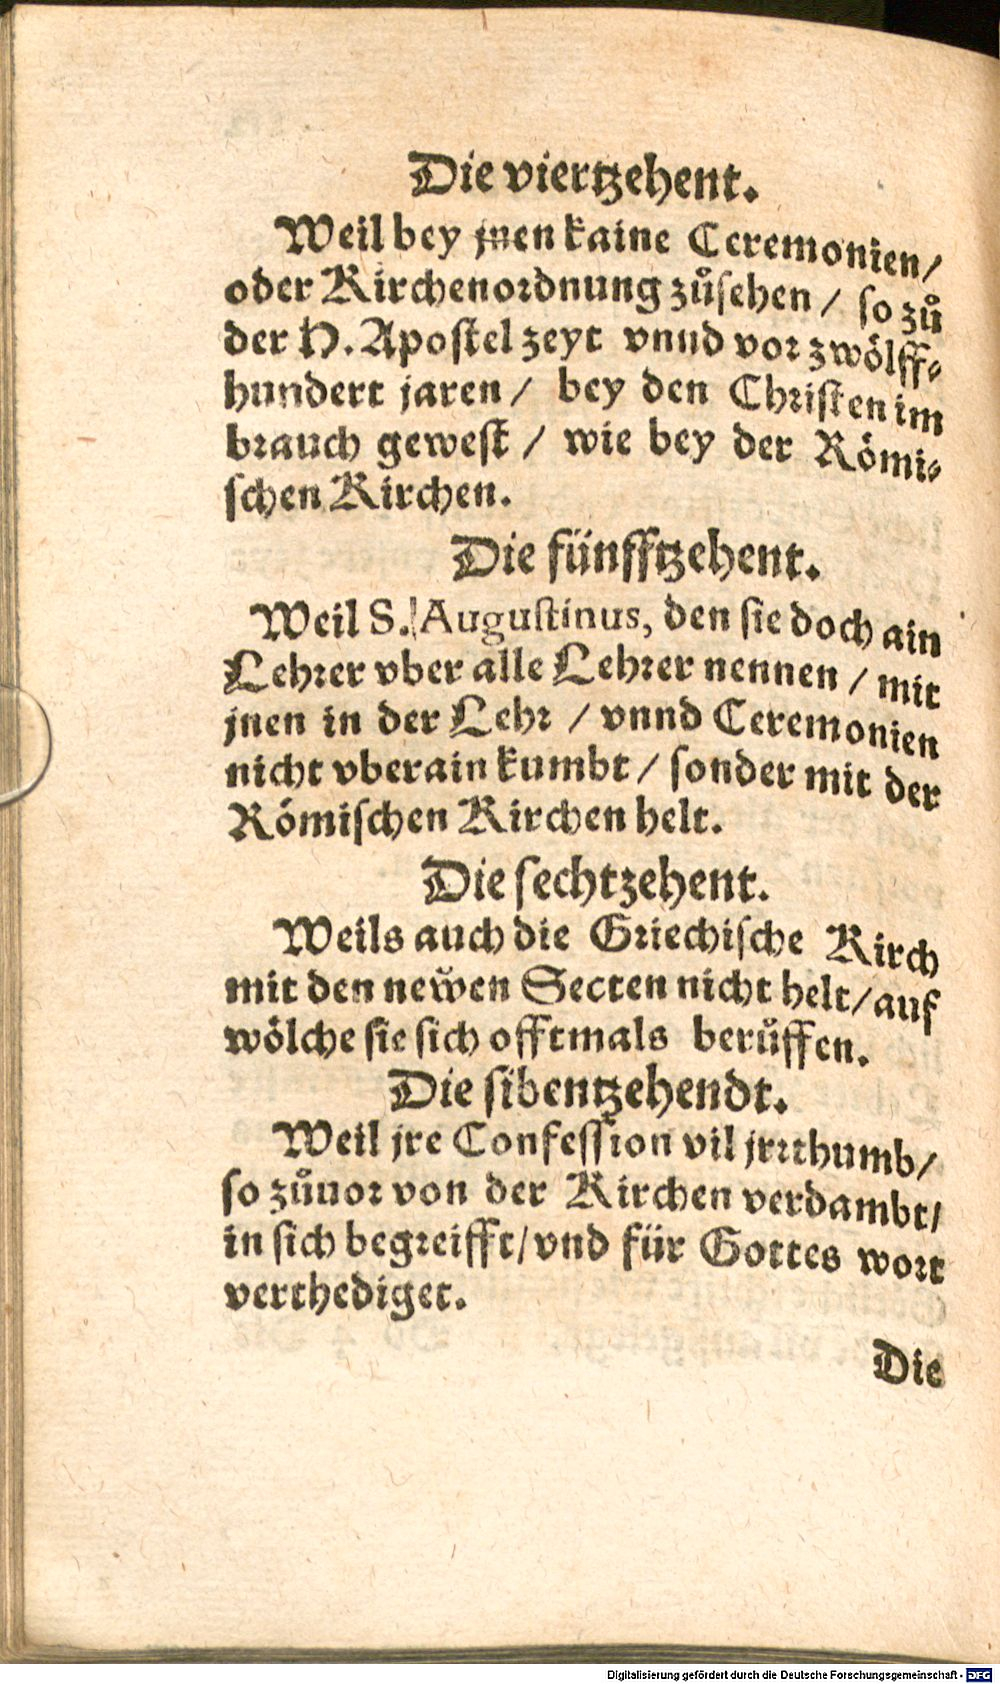 Die viertzehent.
Weil bey jnen kaine Ceremonien/
oder Kirchenordnung zuͦsehen / so zuͦ
der H. Apostel zeyt vnnd vor zwölff⸗
hundert jaren / bey den Christen im
brauch gewest / wie bey der Römi⸗
schen Kirchen.
Die fünfftzehent.
Weil S. Augustinus, den sie doch ain
Lehrer vber alle Lehrer nennen / mit
jnen in der Lehr / vnnd Ceremonien
nicht vberain kumbt / sonder mit der
Römischen Kirchen helt.
Die sechtzehent.
Weils auch die Griechische Kirch
mit den newͤen Secten nicht helt/auf
wölche sie sich offtmals beruͤffen.
Die sibentzehendt.
Weil jre Confession vil jrrthumb/
so zuͦuor von der Kirchen verdambt/
in sich begreifft/vnd für Gottes wort
verthediget.
Die
Digitalisierung gefördert durch die Deutsche Forschungsgemeinschaft - DFG